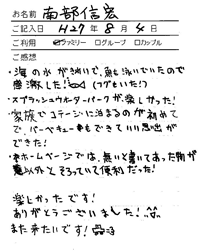 お名前 南部信宏
ご記入日 H27年 8月 4日
ご利用 ☑ファミリー □グループ □カップル
ご感想
・海の水がきれいで、魚も泳いでいたので
感激した! (フグもいた!)
・スプラッシュウォーターパークが楽しかった!
・家族でコテージに泊まるのが初めて
で、バーベキューもできていい思出が
できた!
・ホームページでは、無いと書いてあった闇が
意以外とそろっていて便利だった!
楽しかったです!
ありがとうございました!
また来たいです!